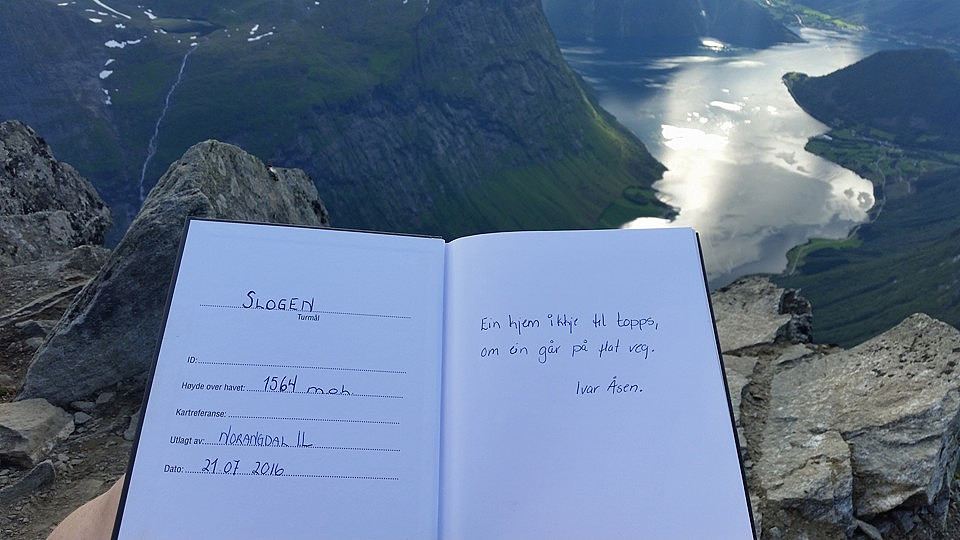 SLOGEN
Turmål
ID:
Høyde over havet: 1564 moh.
Kartreferanse:
Utlagt av: NORANGDAL IL
Dato: 21.07 2016
Ein hjem ikkje til topps,
om ein går på flat veg.
Ivar Åsen.